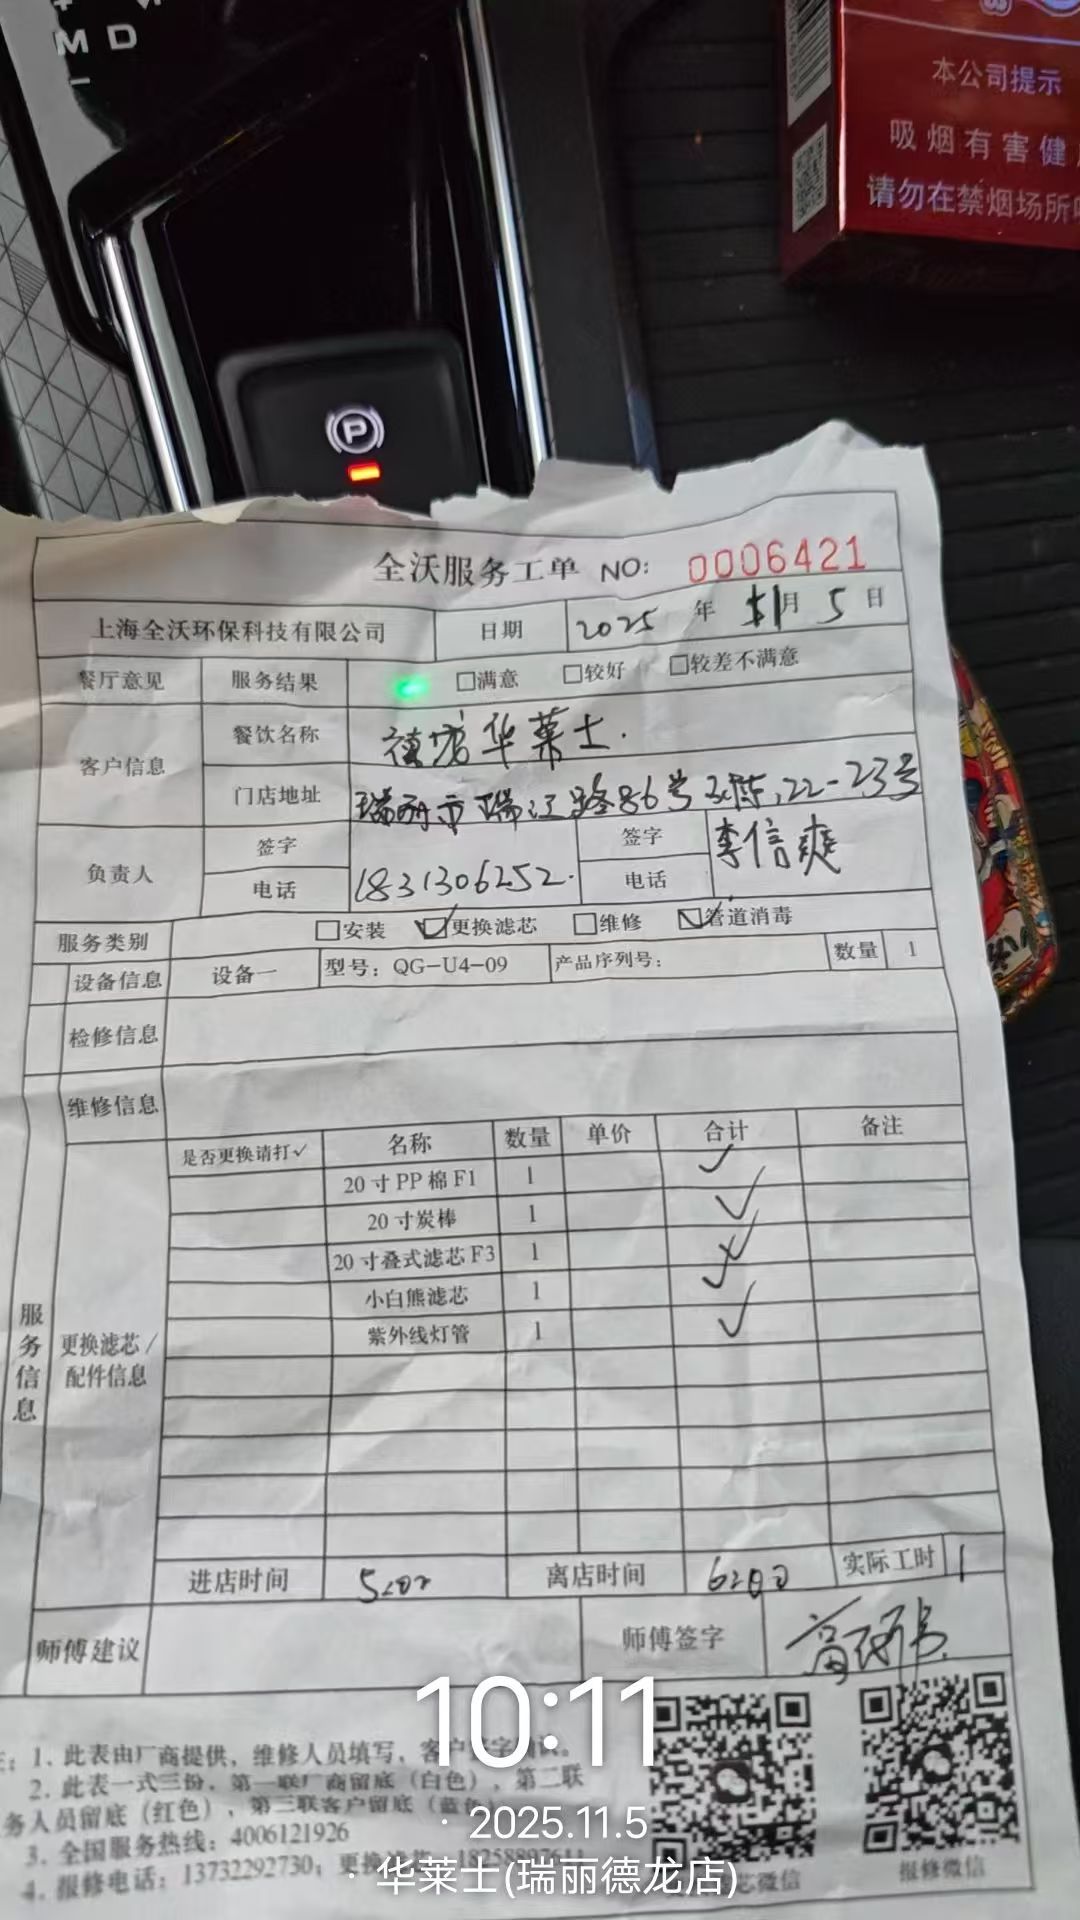 M D
本公司提示
吸烟有害健
请勿在禁烟场所
P
全沃服务工单 NO: 0006421
上海全沃环保科技有限公司 日期 2025 年 11月 5 日
餐厅意见 服务结果 □满意 □较好 □较差不满意
客户信息 餐饮名称 华莱士.
门店地址 瑞丽市瑞江路86号 22-23号
负责人 签字 签字 李信爽
电话 1831306252. 电话
服务类别 □安装 ☑更换滤芯 □维修 ☑管道消毒
设备信息 设备一 型号: QG-U4-09 产品序列号: 数量 1
检修信息
维修信息
服务信息
更换滤芯/配件信息
是否更换请打✓ 名称 数量 单价 合计 备注
20寸PP棉F1 1 ✓
20寸炭棒 1 ✓
20寸叠式滤芯F3 1 ✓
小白熊滤芯 1 ✓
紫外线灯管 1 ✓
进店时间 离店时间 实际工时 1
师傅建议 师傅签字
1. 此表由厂商提供, 维修人员填写, 客户
2. 此表一式三份, 第一联厂商留底(白色), 第二联
务人员留底(红色), 第三联客户留底(蓝色)
3. 全国服务热线: 4006121926
4. 报修电话: 13732292730; 更换
微信 报修微信
10:11
· 2025.11.5
· 华莱士(瑞丽德龙店)